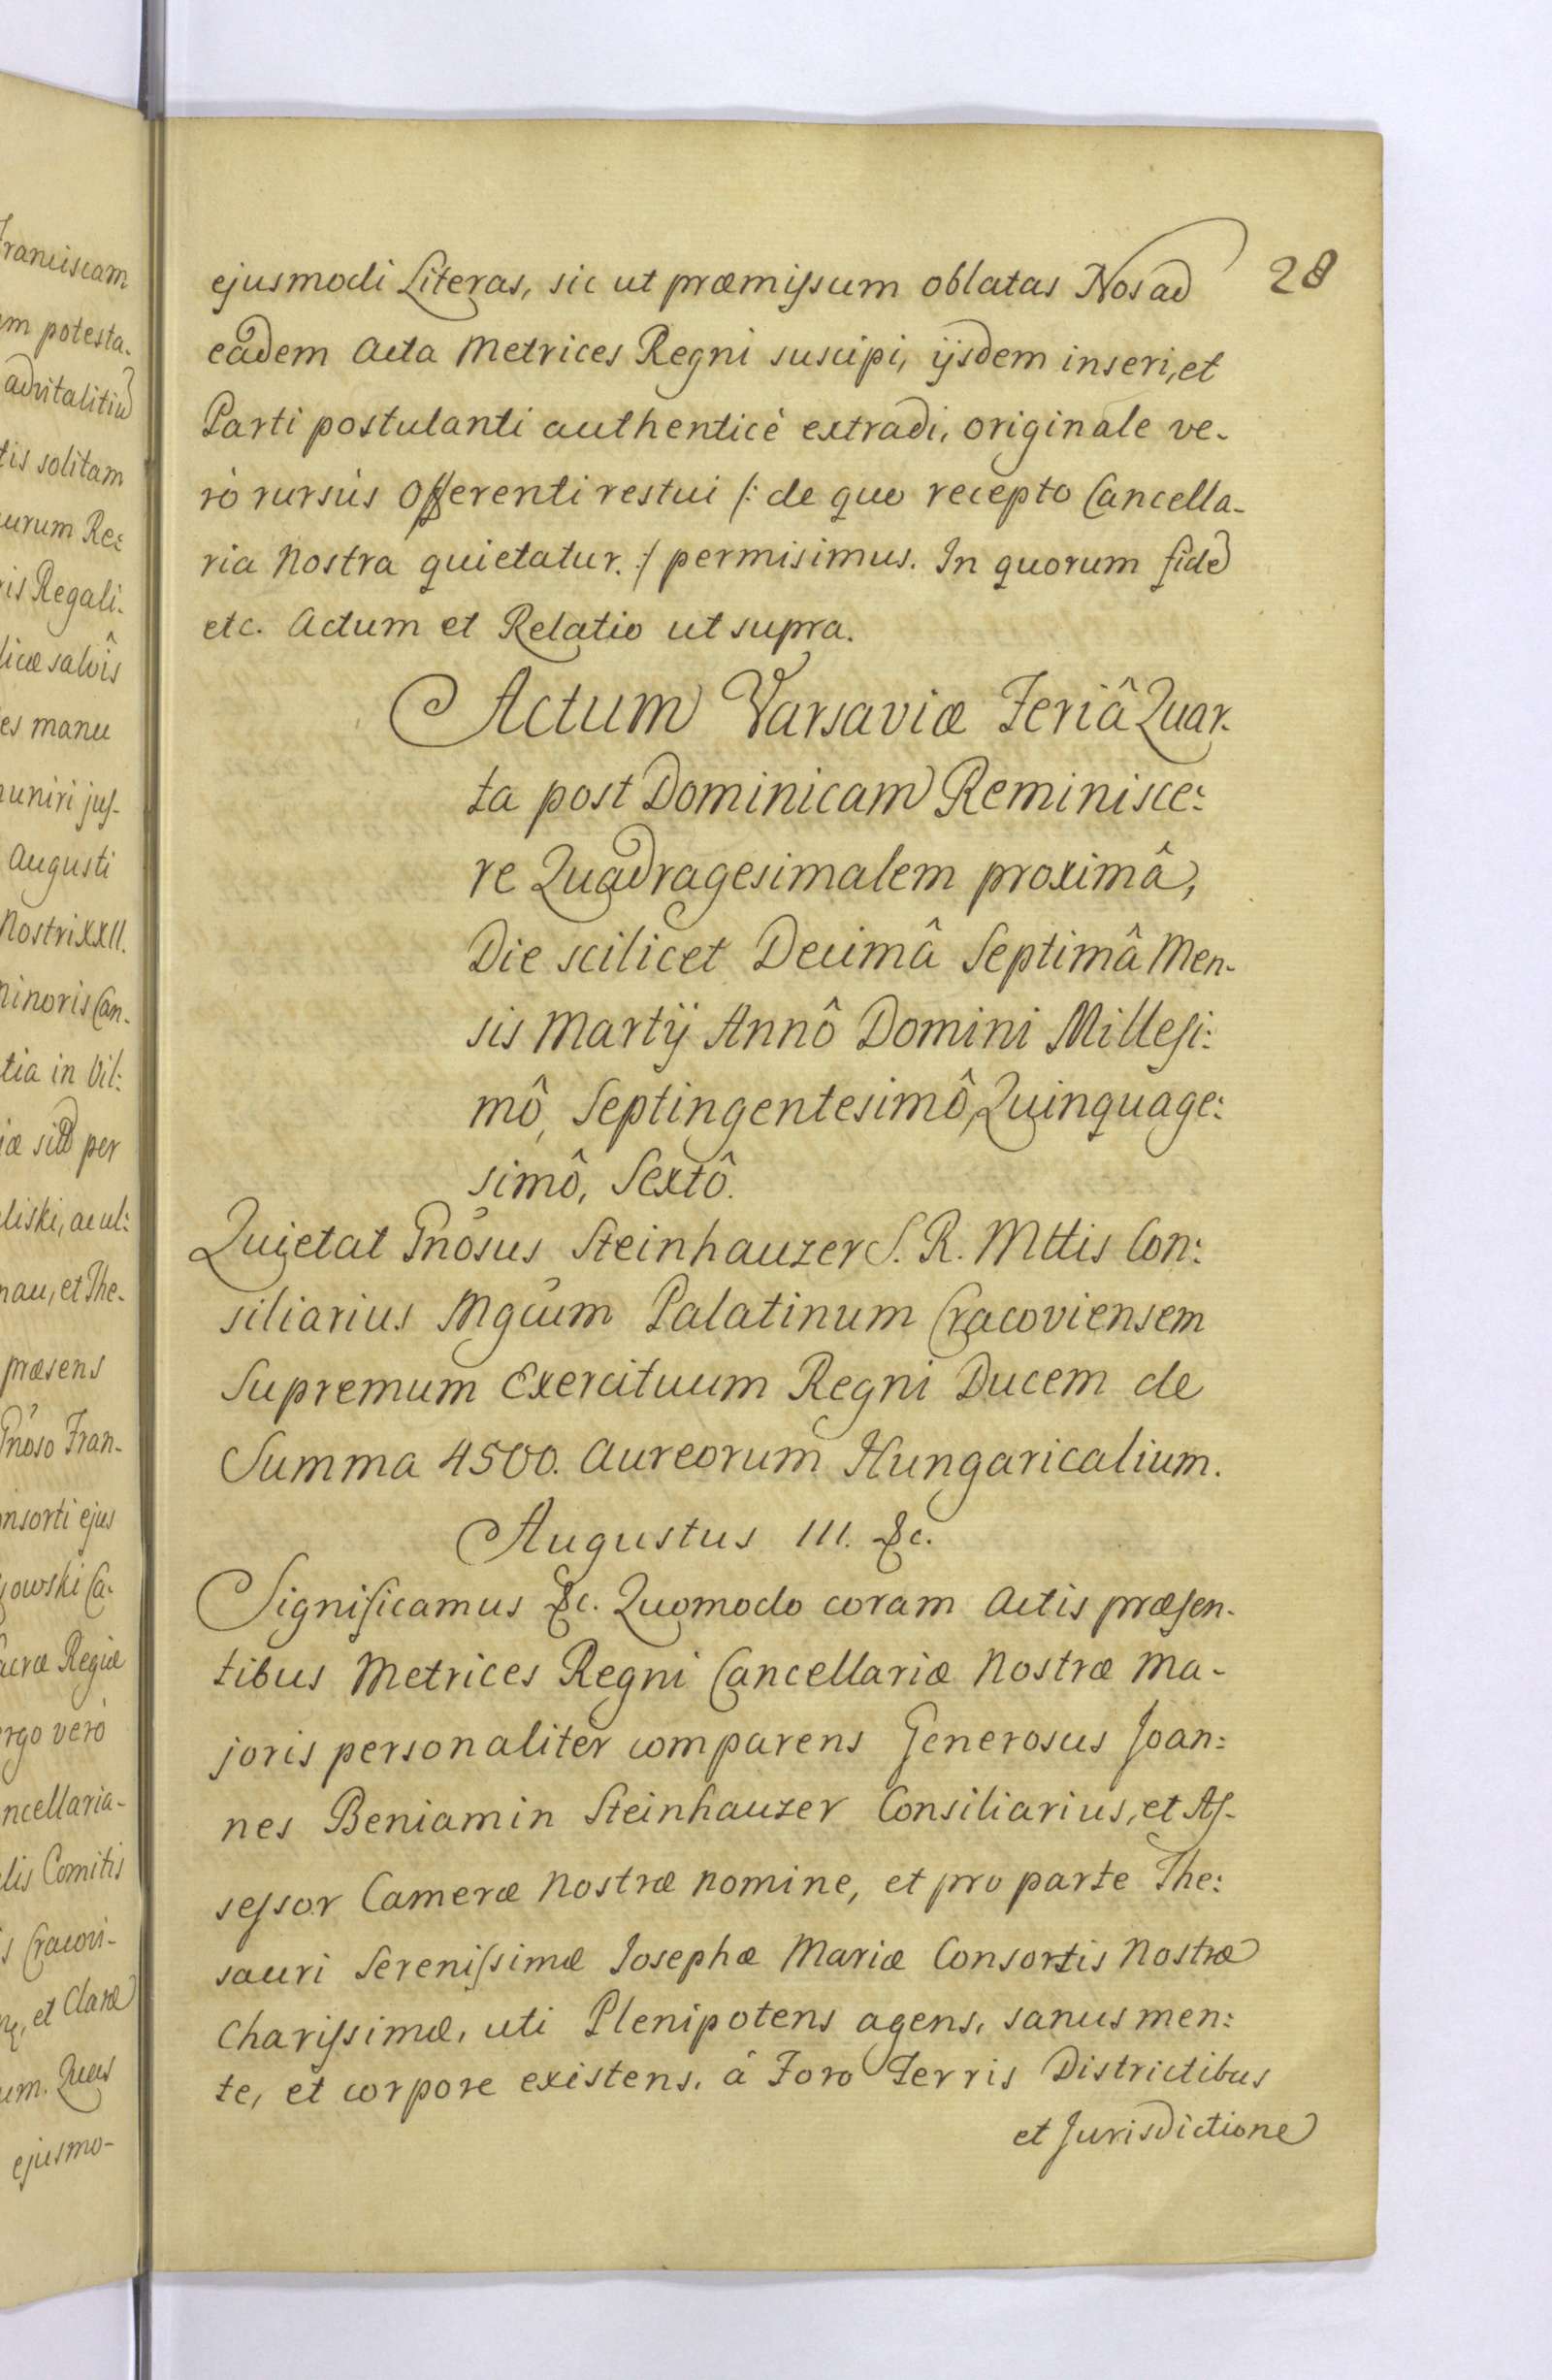 28
ejusmodi Literas, sic ut præmissum oblatas Nos ad
eadem Acta Metrices Regni suscipi, ijsdem inseri, et
Parti postulanti authenticè extradi, originale ve-
rò rursùs Offerenti restui /: de quo recepto Cancella-
ria Nostra quietatur. :/ permisimus. In quorum fide
etc. Actum et Relatio ut supra.
Actum Varsaviæ Feriâ Quar-
ta post Dominicam Reminisce:
re Quadragesimalem proximâ,
Die scilicet Decimâ Septimâ Men-
sis Martij Annô Domini Millesi:
mô, Septingentesimô, Quinquage:
simô, Sextô.
Quietat Gnosus Steinhauzer S. R. Mttis Con:
siliarius Mgcum Palatinum Cracoviensem
Supremum Exercituum Regni Ducem de
Summa 4500. Aureorum Hungaricalium.
Augustus III. &c.
Significamus &c. Quomodo coram Actis præsen-
tibus Metrices Regni Cancellariæ Nostræ Ma-
joris personaliter comparens Generosus Joan:
nes Beniamin Steinhauzer Consiliarius, et As-
sessor Cameræ Nostræ nomine, et pro parte The:
sauri Serenissimæ Josephæ Mariæ Consortis Nostræ
Charissimæ, uti Plenipotens agens, sanus men:
te, et corpore existens, â Foro Terris Districtibus
et Jurisdictione
Franciscam
m potesta-
advitalitiu
tis solitam
urum Re:
ris Regali-
licæ salvîs
es manu
uniri jus-
Augusti
Nostri XXII.
inoris Can-
tia in Vil:
per
liski, ac ul:
nau, et The-
præsens
Gnoso Fran-
nsorti ejus
owski Ca-
acræ Regiæ
rgo verò
ncellaria-
lis Comitis
s Cracovi-
et Claræ
um. Quas
ejusmo-